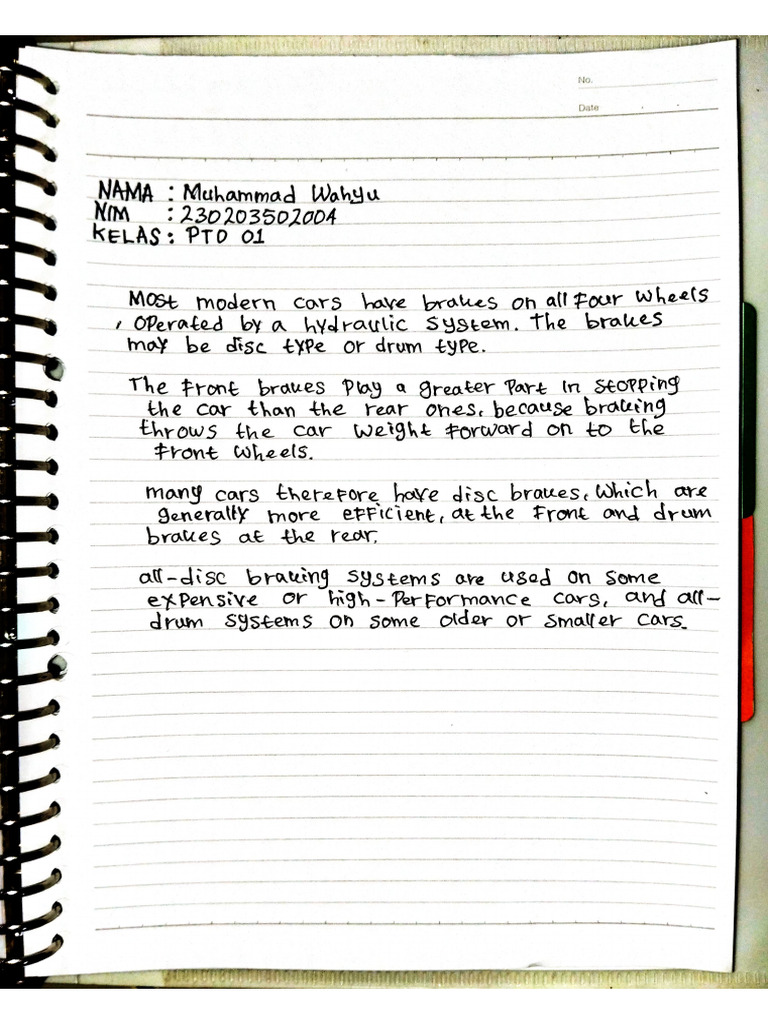 No.
Date
NAMA : Muhammad Wahyu
NIM : 230203502004
KELAS : PTO 01
Most modern cars have brakes on all four wheels
, operated by a hydraulic system. The brakes
may be disc type or drum type.
The front brakes play a greater part in stopping
the car than the rear ones, because braking
throws the car weight forward on to the
front wheels.
many cars therefore have disc brakes, which are
generally more efficient, at the front and drum
brakes at the rear.
all-disc braking systems are used on some
expensive or high-performance cars, and all-
drum systems on some older or smaller cars.